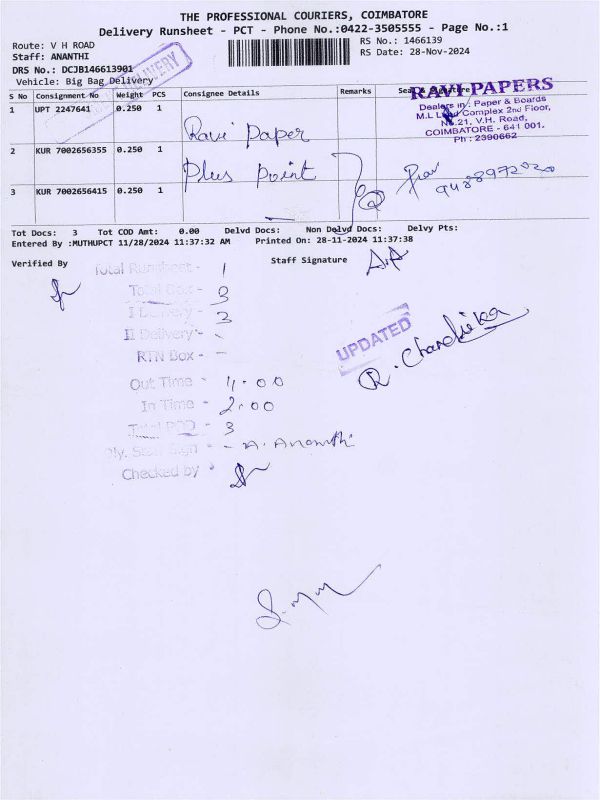 THE PROFESSIONAL COURIERS, COIMBATORE
Delivery Runsheet - PCT - Phone No.:0422-3505555 - Page No.:1
Route: V H ROAD
RS No.: 1466139
Staff: ANANTHI
RS Date: 28-Nov-2024
DRS No.: DCJB146613901
Vehicle: Big Bag Delivery
DELIVERY
S No Consignment No Weight PCS Consignee Details Remarks Seal & Signature
RAVI PAPERS
Dealers in : Paper & Boards
M.L Complex 2nd Floor,
No.21, V.H. Road,
COIMBATORE - 641 001.
Ph : 2390662
1 UPT 2247641 0.250 1 Ravi Paper
2 KUR 7002656355 0.250 1 Plus Point
3 KUR 7002656415 0.250 1
Tot Docs: 3 Tot COD Amt: 0.00 Delvd Docs: Non Delvd Docs: Delvy Pts:
Entered By :MUTHUPCT 11/28/2024 11:37:32 AM Printed On: 28-11-2024 11:37:38
Verified By
Staff Signature A.A
Total Runsheet - 1
Total Box - 3
I Delivery - 3
II Delivery - -
RTN Box - -
UPDATED
R. Chandrika
Out Time - 11.00
In Time - 2.00
Total POD - 3
Dly. Staff Sign - A. Ananthi
Checked by -